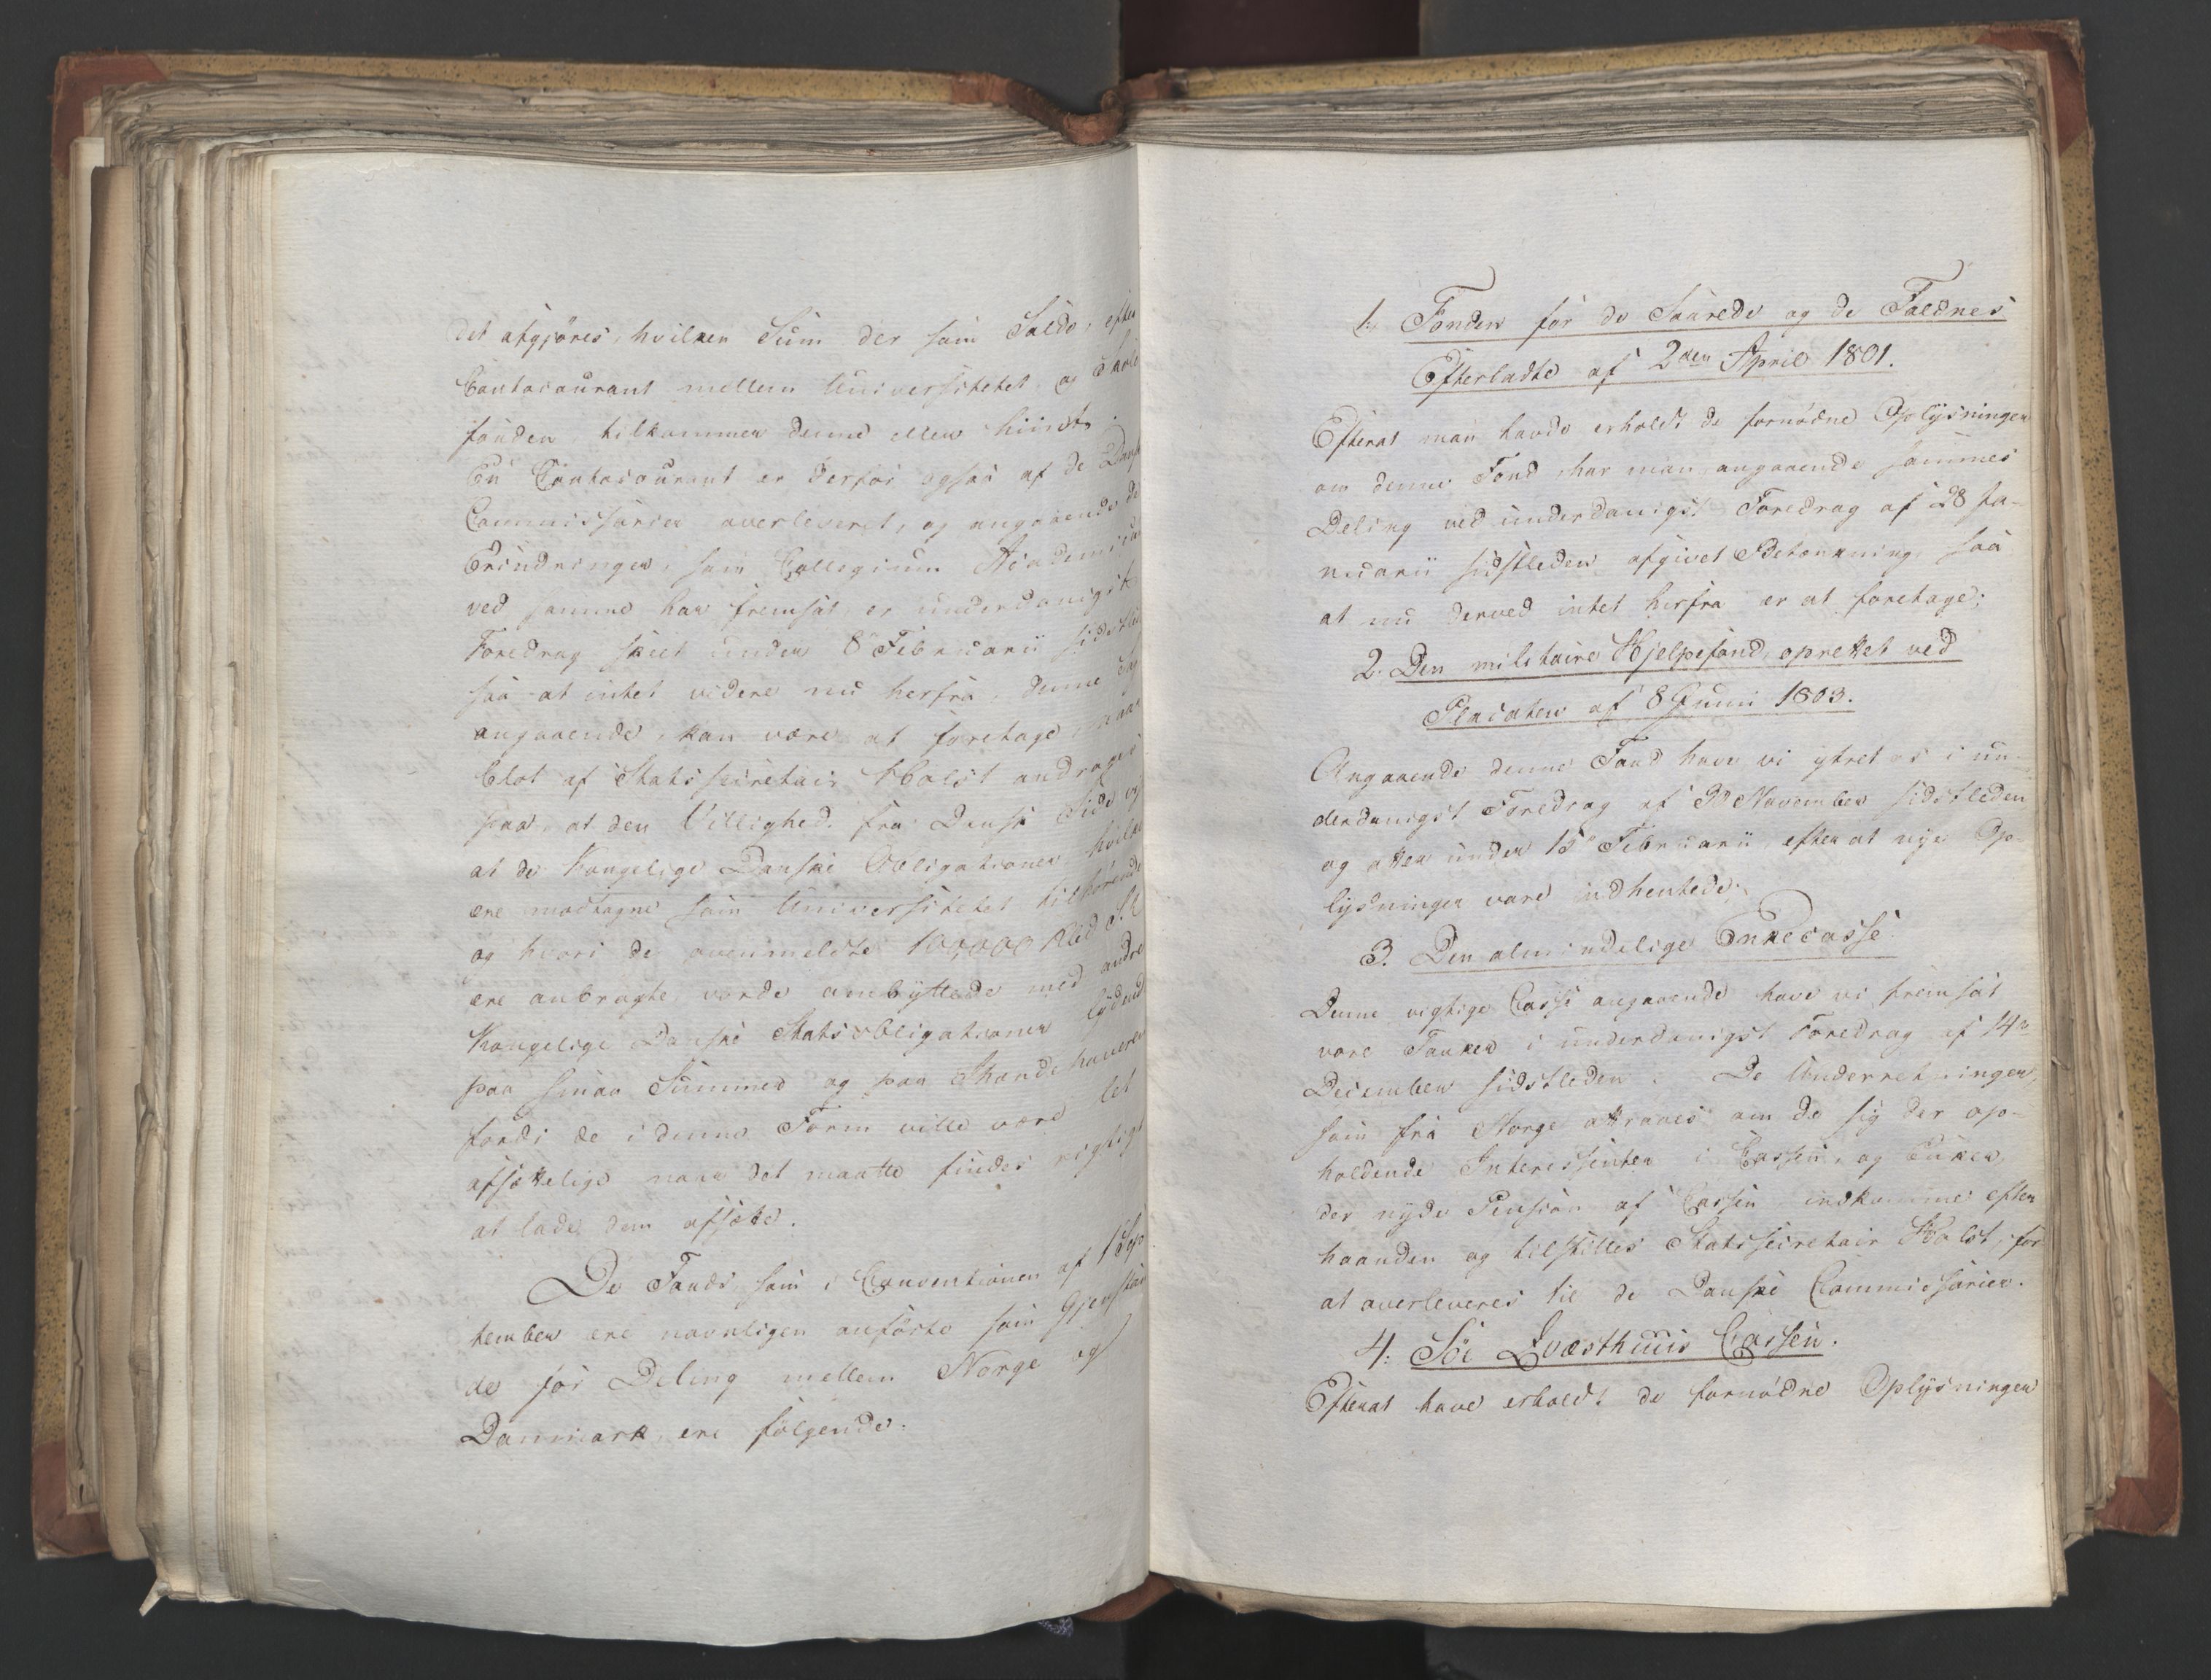 det afgjöres, hvilken Sum der som Saldo, efter
Contocourant mellem Universitetet og
fonden tilkommer denne eller hiint.
En Contocourant er derfor ogsaa af de Dansk
Commissarier overleveret, og angaaende de
Erindringer, som Collegium Academicum
ved samme har fremsat er underdanigst
Foredrag skeet under 8de Februarii sidstled
saa at intet videre nu herfra, denne
angaaende, kan være at foretage, naar
blot af Statssecretair Holst andrages
paa, at den Villighed fra Dansk Side
at de Kongelige Danske Obligationer, hvilke
ere modtagne som Universitetet tilhørende
og hvori de ovenmeldte 100,000 Rbd S.V.
ere anbragte, vorde ombyttede med andre
Kongelige Danske Statsobligationer lydende
paa smaa Summer og paa Ihændehaveren
fordi de i denne Form ville være let
afsættelige naar det maatte findes rigtigt
at lade dem afsætte.
De Fonds, som i Conventionen af 1 Sep
tember ere navnligen anförte som Gjenstan
de for Deling mellem Norge og
Danmark, ere følgende.
1. Fonden for de Saarede og de Faldnes
Efterladte af 2den April 1801.
Efterat man havde erholdt de fornödne Oplysninger
om denne Fond, har man angaaende sammes
Deling ved underdanigst Foredrag af 28 Ja-
nuarii sidstleden afgivet Betænkning, saa
at nu derved intet herfra er at foretage;
2. Den militaire Hjelpefond, oprettet ved
Placaten af 8 Juni 1803.
Angaaende denne Fond have vi ytret os i un-
derdanigst Foredrag af 30 November sidstleden
og atter under 15de Februarii, efterat nye Op-
lysninger vare indhentede;
3. Den almindelige Enkecasse.
Denne vigtige Casse angaaende have vi fremsat
vore Tanker i underdanigst Foredrag af 14de
December sidstleden. De Underretninger,
som fra Norge attraaes om de sig der op-
holdende Interessenter i Cassen, og Enker,
der nyde Pension af Cassen indkomme efter
haanden og tilstilles Statssecretair Holst, for
at overleveres til de Danske Commissarier.
4. Söe Qvæsthuus Cassen.
Efterat have erholdt de fornödne Oplysninger